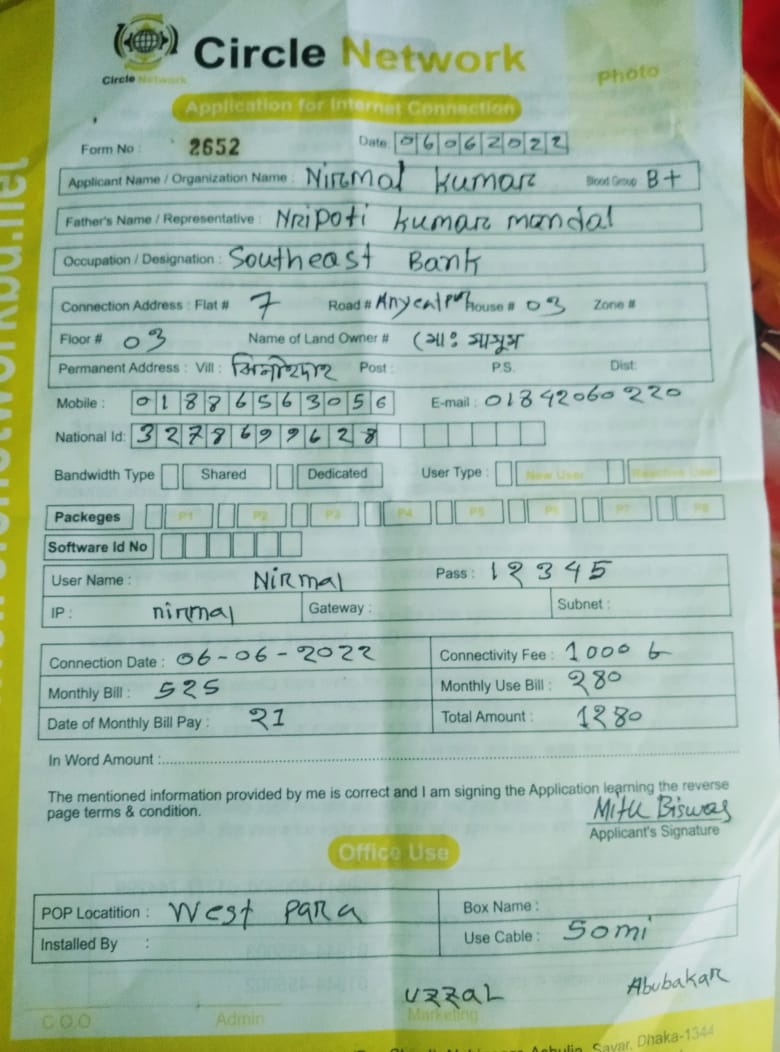 Circle Network
Circle Network
Photo
Application for Internet Connection
Form No : 2652 Date: 06062022
Applicant Name / Organization Name : Nirmal kumar Blood Group B+
Father's Name / Representative : Nripoti kumar mondal
Occupation / Designation : Southeast Bank
Connection Address : Flat # 7 Road # House # 03 Zone #
Floor # 03 Name of Land Owner # মোঃ মাসুম
Permanent Address : Vill : Post : P.S. Dist:
Mobile : 01886563056 E-mail : 01842060220
National Id: 3278699628
Bandwidth Type Shared Dedicated User Type : New User Reactive User
Packeges P1 P2 P3 P4 P5 P6 P7 P8
Software Id No
User Name : Nirmal Pass : 12345
IP : nirmal Gateway : Subnet :
Connection Date : 06-06-2022 Connectivity Fee : 1000 ৳
Monthly Bill : 525 Monthly Use Bill : 280
Date of Monthly Bill Pay : 21 Total Amount : 1280
In Word Amount :
The mentioned information provided by me is correct and I am signing the Application learning the reverse
page terms & condition.
Mitu Biswas
Applicant's Signature
Office Use
POP Locatition : West para Box Name :
Installed By : Use Cable : 50mi
uzzaL Abubakar
C.O.O Admin Marketing
Ashulia, Savar, Dhaka-1344